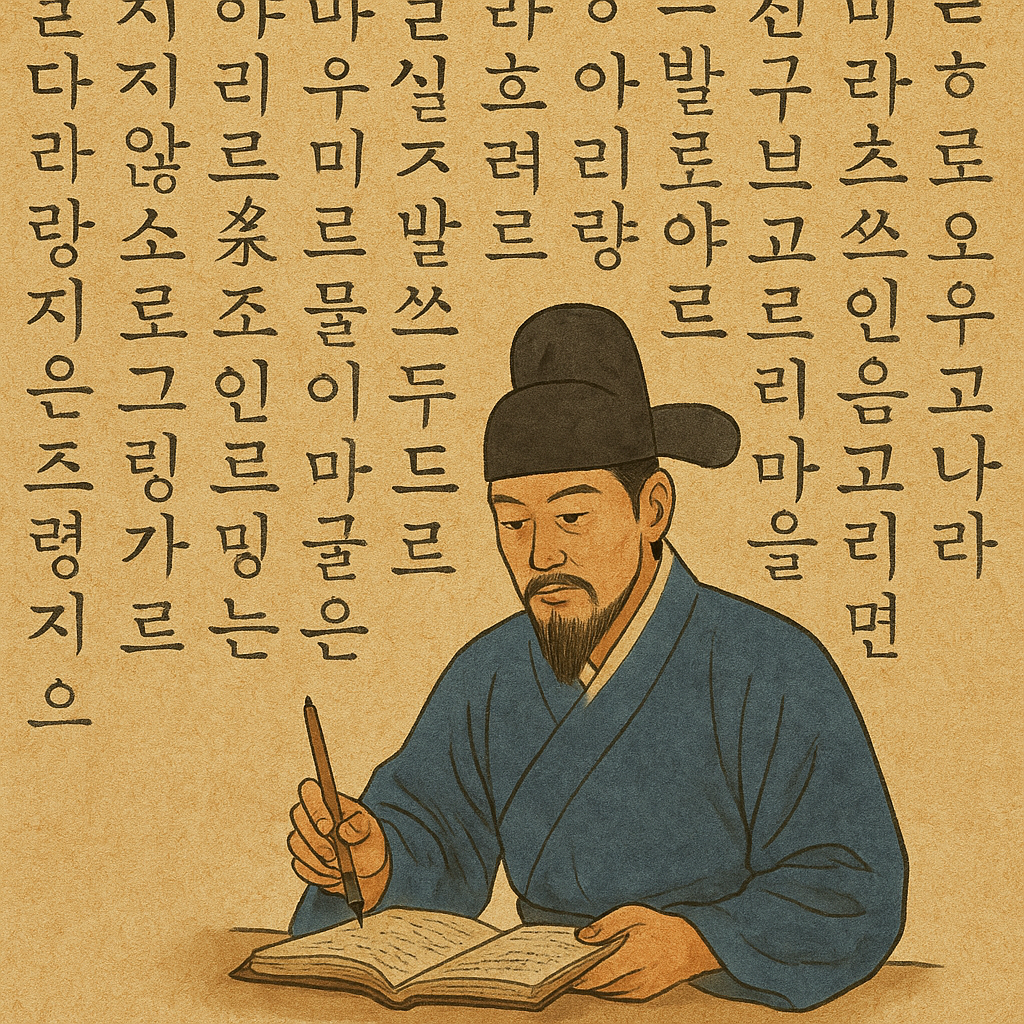 ㅎ로오우고나라
라츠쓰인음고리면
구브고르리마을
발로야르
아리량
흐려르
실ㅈ발쓰두드르
우미르물이마굴은
리르조인르밍는
지않소로그링가르
다라랑지은즈령지으